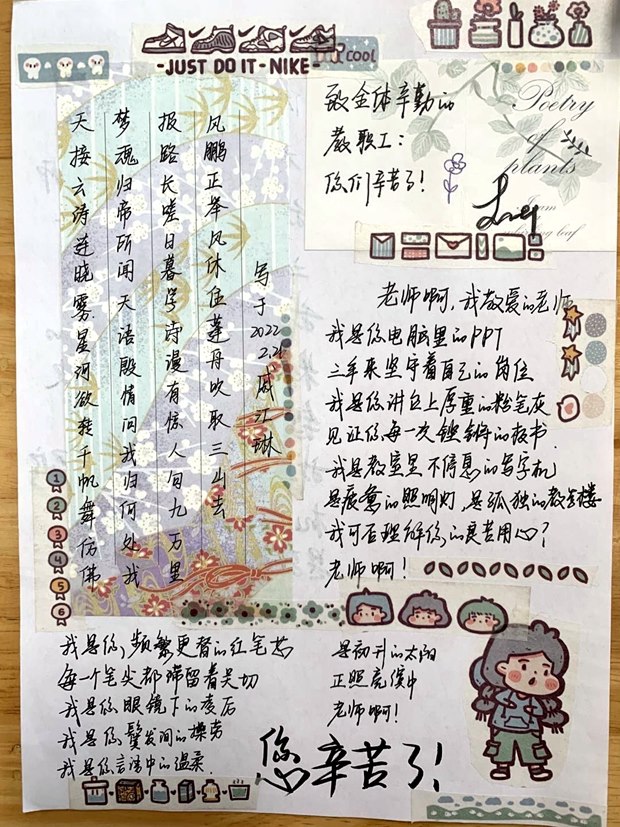 -JUST DO IT-NIKE-
COOL
天接云涛连晓雾星河欲转千帆舞仿佛
梦魂归帝所闻天语殷情问我归何处我
报路长嗟日暮学诗漫有惊人句九万里
风鹏正举风休住蓬舟吹取三山去
写于2022
2.21
戚江琳
Poetry
of
plants
leaf
致全体辛勤的
教职工:
你们辛苦了!
老师啊,我敬爱的老师
我是你电脑里的PPT
三年来坚守着自己的岗位
我是你讲台上厚重的粉笔灰
见证你每一次铿锵的板书
我是教室里不停息的写字机
是疲惫的照明灯,是孤独的教学楼
我可否理解你的良苦用心?
老师啊!
1
2
3
4
5
6
我是你,频繁更替的红笔芯
每一个笔尖都滞留着关切
我是你眼镜下的凌厉
我是你鬓发间的操劳
我是你言语中的温柔.
是初升的太阳
正照亮
老师啊!
您辛苦了!